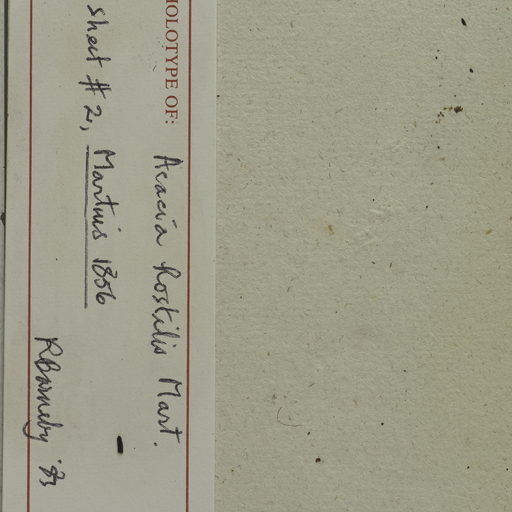 HOLOTYPE OF: Acacia hostilis Mart.
sheet # 2, Martius 1856
RBarneby '83